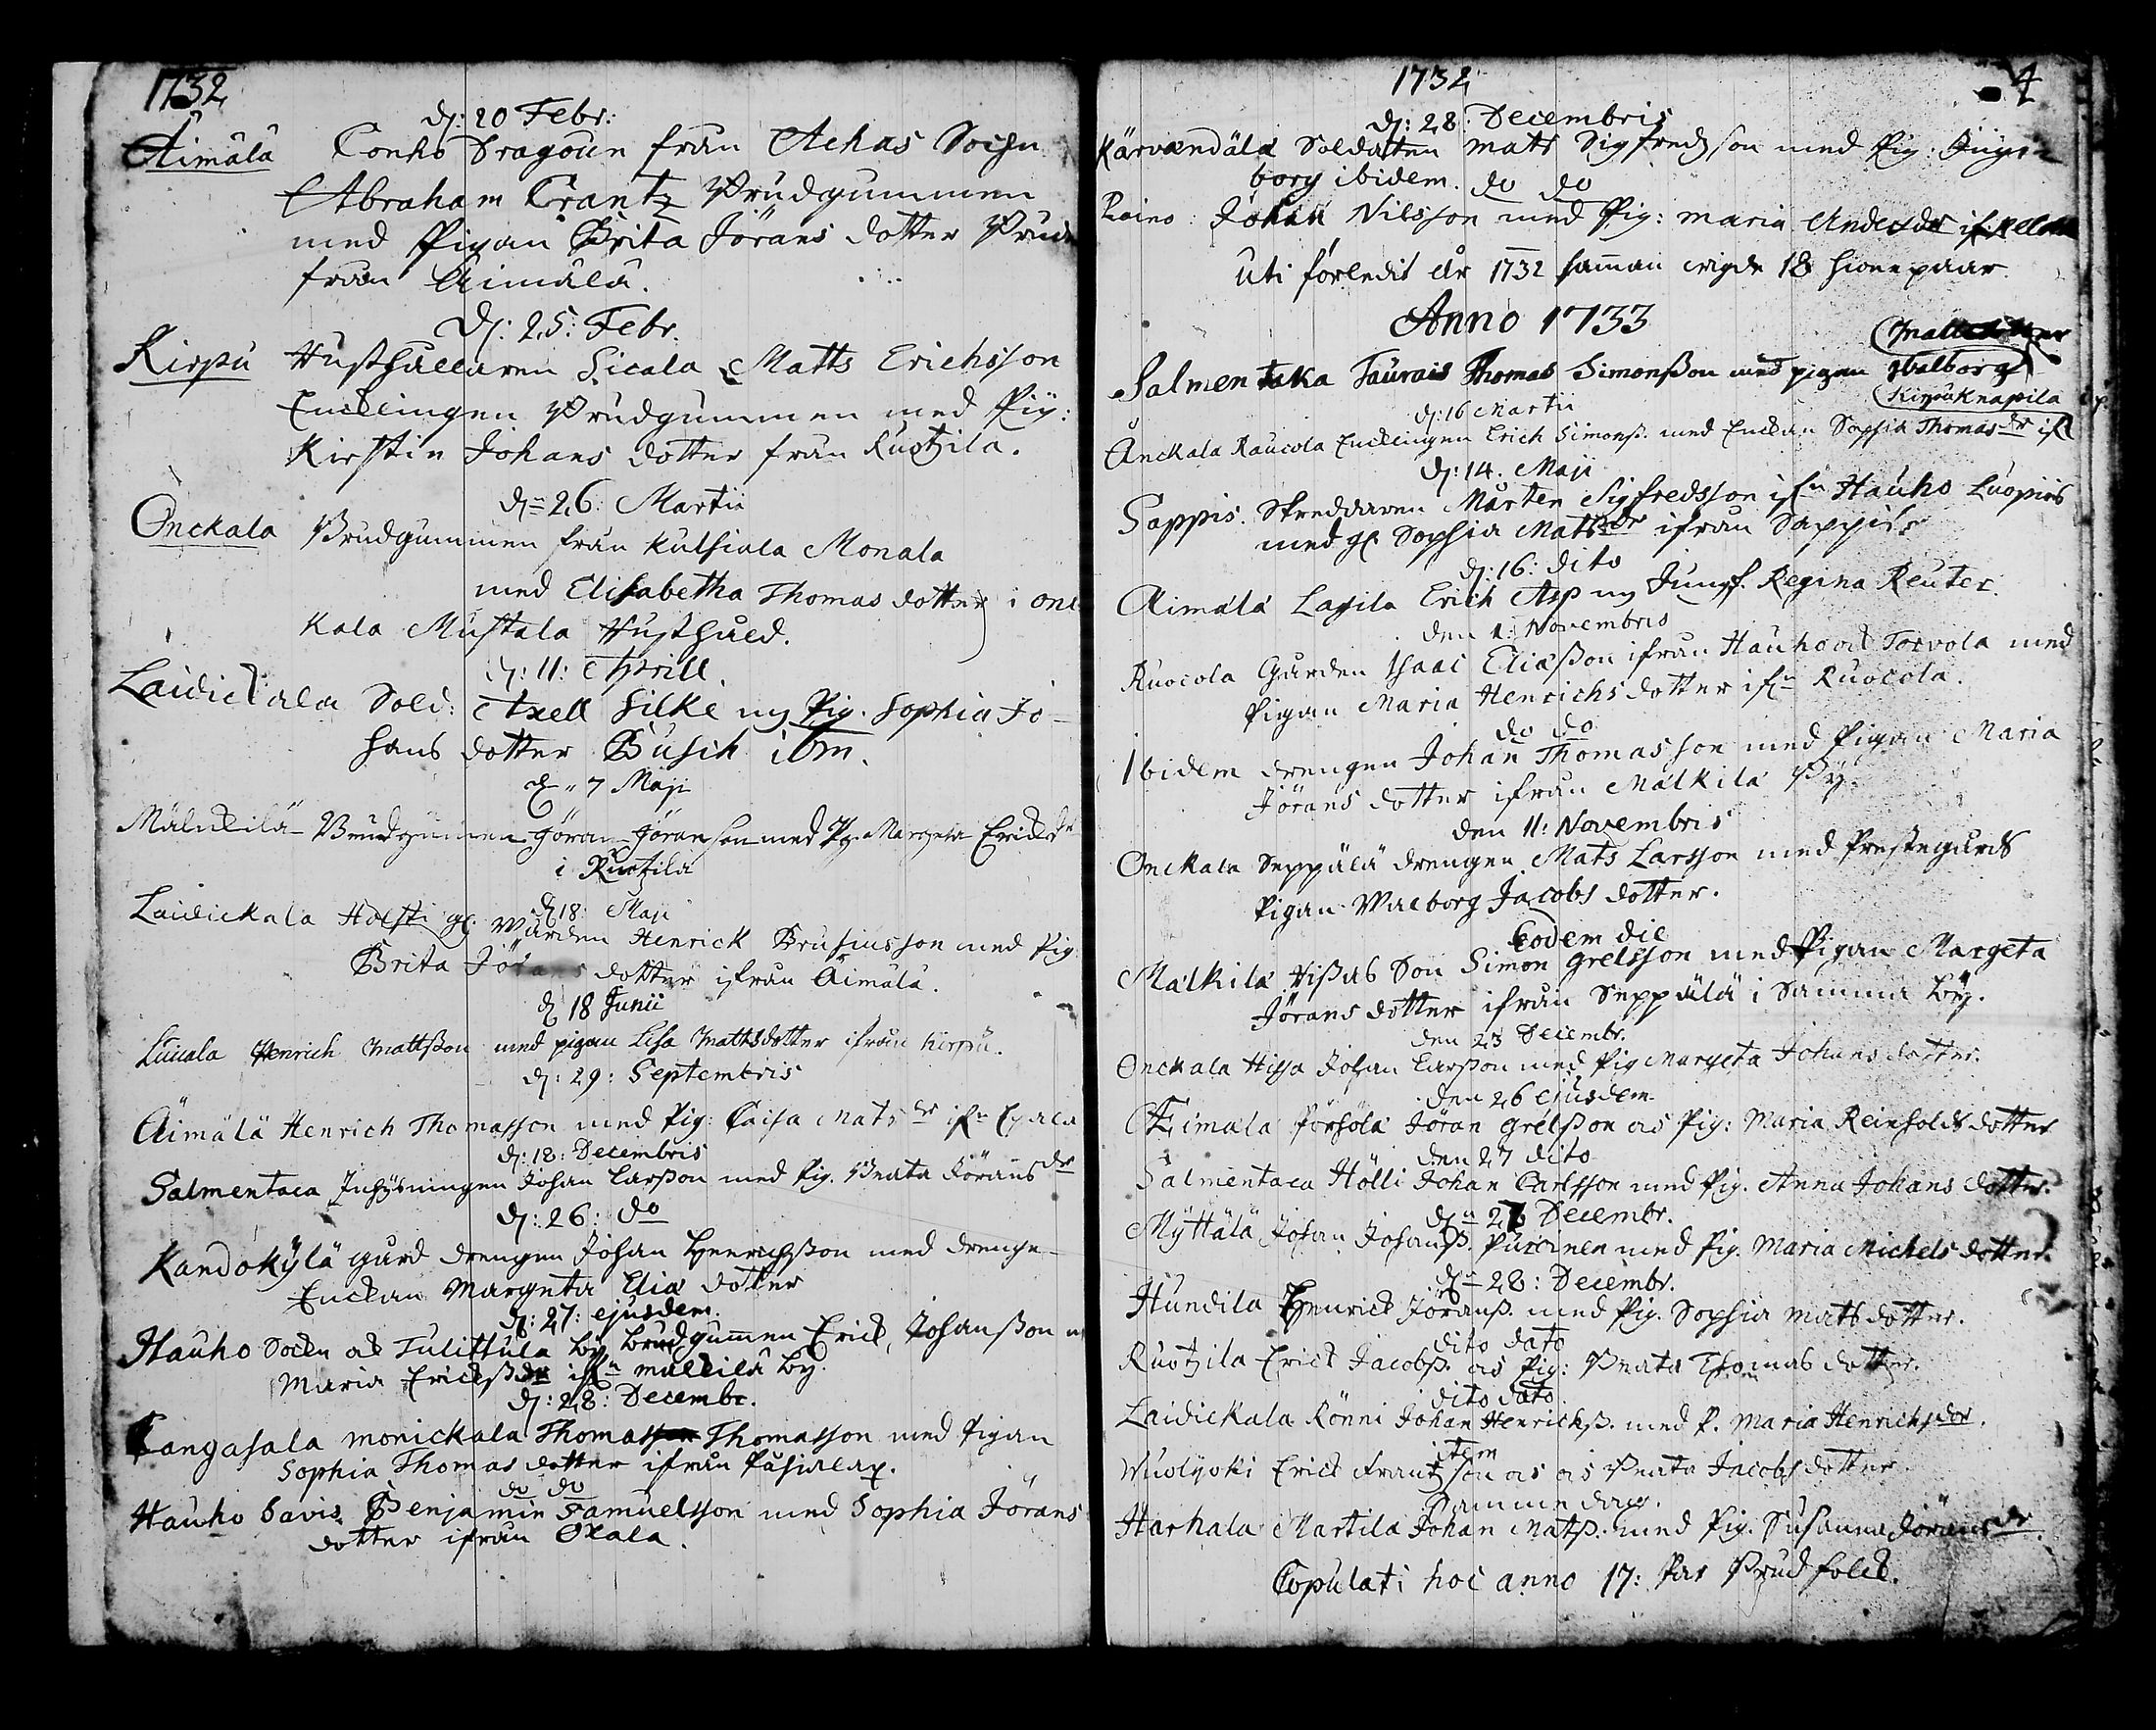 1732
d: 20 Febr:
Äimälä Conho Dragoun från Achas Sochn
Abraham Crantz Brudgummen
med Pigan Brita Jörans dotter Brud
från Äimälä.
D: 25: Febr.
Kirpu Husthållaren Sicala Matts Erichsson
Encklingen Brudgummen med Pig:
Kirstin Johans dotter från Ruotzila.
dn 26: Martii
Onckala Brudgummen från Kulsiala Monala
med Elisabetha Thomas dotter i Onc
kala Mustala Husthåld.
d: 11: Aprill.
Laidickala Sold: Axell Silke og Pig. Sophia Jo-
hans dotter Busch ibm.
d. 7 Maji
Mälckilä Brudgummen Jöran Jöransson med Pg. Margeta Ericksdr
i Ruotzila
d 18: Maji
Laidickala Holsti gl. Wärden Henrick Brusiusson med Pig
Brita Jörans dotter ifrån Äimälä.
d 18 Junii
Luuala Henrich Mattsson med pigan Lisa Mattsdotter ifrån Kirpu.
d: 29: Septembris
Äimälä Henrich Thomasson med Pig: Caisa Mats dr ifn
d: 18: Decembris
Salmentaca Inhysningen Johan Larsson med Pig. Beata Jörans dr
d: 26: do
Kandokylä gård drengen Johan Henrichsson med drenge-
Enckan Margeta Elias dotter
d: 27: ejusdem.
Hauho Sockn ock Tulittula by brudgummen Erick Johansson m
Maria Ericks dr ifn mälkilä by.
d: 28: Decembr.
Cangasala monickala Thomasson Thomasson med Pigan
Sophia Thomas dotter ifrån Pusiala.
do do
Hauho Savis Benjamin Samuelsson med Sophia Jörans
dotter ifrån Okala.
1732 4
d: 28: Decembris
Kärvændälä Soldatten Mats Sigfredsson med Pig. Inge-
borg ibidem. do do
Raino: Johan Nilsson med Pig: Maria Andersdr
Uti förledit år 1732 samman vigde 18 hione paar.
Anno 1733
Mattsdotter
Salmentaka Taurais Thomas Simonsson med pigan Walborg
Kirpu Knapila
d: 16 Martii
Onckala Raucola Encklingen Erich Simonss. med Enckan Sophia Thomas dr
d: 14. Maji
Sappis. Skreddaren Mårten Sigfredsson ifn Hauho Luopiois
med gl. Sophia Mats dr ifrån Sappis
d: 16: dito
Äimälä Lagila Erich Asp og Jungf. Regina Reuter.
den 1: Novembris
Ruocola Gården Isaac Eliasson ifrån Hauho ock Torvola med
Pigan Maria Henrichs dotter ifn Ruocola.
do do
Ibidem drengen Johan Thomasson med Pigan Maria
Jörans dotter ifrån Mälkilä By.
den 11: Novembris
Onckala Seppälä drengen Mats Larsson med Prestegårds
Pigan Walborg Jacobs dotter.
Eodem die
Mälkilä Hissas Son Simon Grelsson med Pigan Margeta
Jörans dotter ifrån Seppälä i Samma by.
den 23 Decembr.
Onckala Hissa Johan Larsson med Pig Margeta Johans dotter.
den 26 ejusdem
Äimälä Pörhölä Jöran Grelsson os Pig: Maria Reinholds dotter
den 27 dito
Salmentaca Hölli Johan Carlsson med Pig. Anna Johans dotter.
dn 27 Decembr.
Myttälä Johan Johanss. Purainen med Pig. Maria Michels dotter.
dn 28: Decembr.
Hundila Henrick Jöranss. med Pig. Sophia Mats dotter.
dito dato
Ruotzila Erick Jacobss. os Pig: Beata Thomas dotter.
dito dato
Laidickala Rönni Johan Henrichss. med P. Maria Henrichsdor.
item
Wuolyoki Erick Frantzson os os Beata Jacobs dotter
Samme dag.
Harhala Martila Johan Matss. med Pig. Susanna Jörans dr.
Copulati hoc anno 17: Par Brud folck.